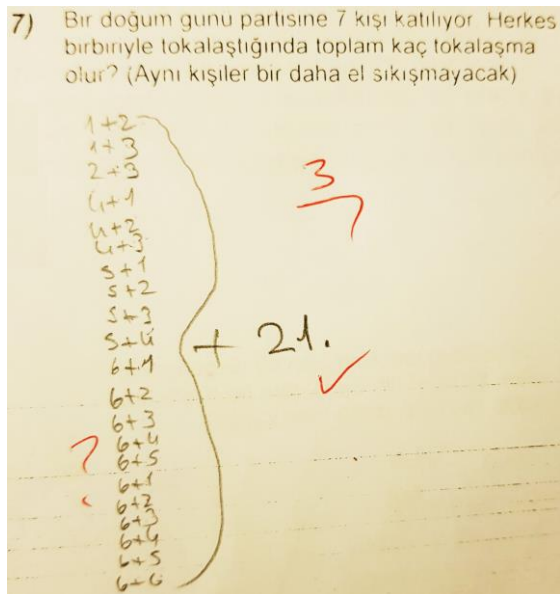 7) Bir doğum günü partisine 7 kişi katılıyor. Herkes
birbiriyle tokalaştığında toplam kaç tokalaşma
olur? (Aynı kişiler bir daha el sıkışmayacak)
1+2
1+3
2+3
4+1
4+2
4+3
5+1
5+2
5+3
5+4
6+1
6+2
6+3
6+4
6+5
6+1
6+2
6+3
6+4
6+5
6+6
+ 21.
3
?